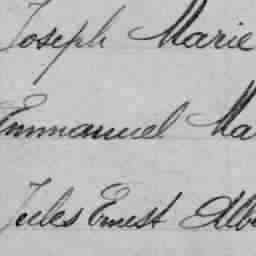 Joseph Marie
Emmanuel Ma
Jules Ernest Alb